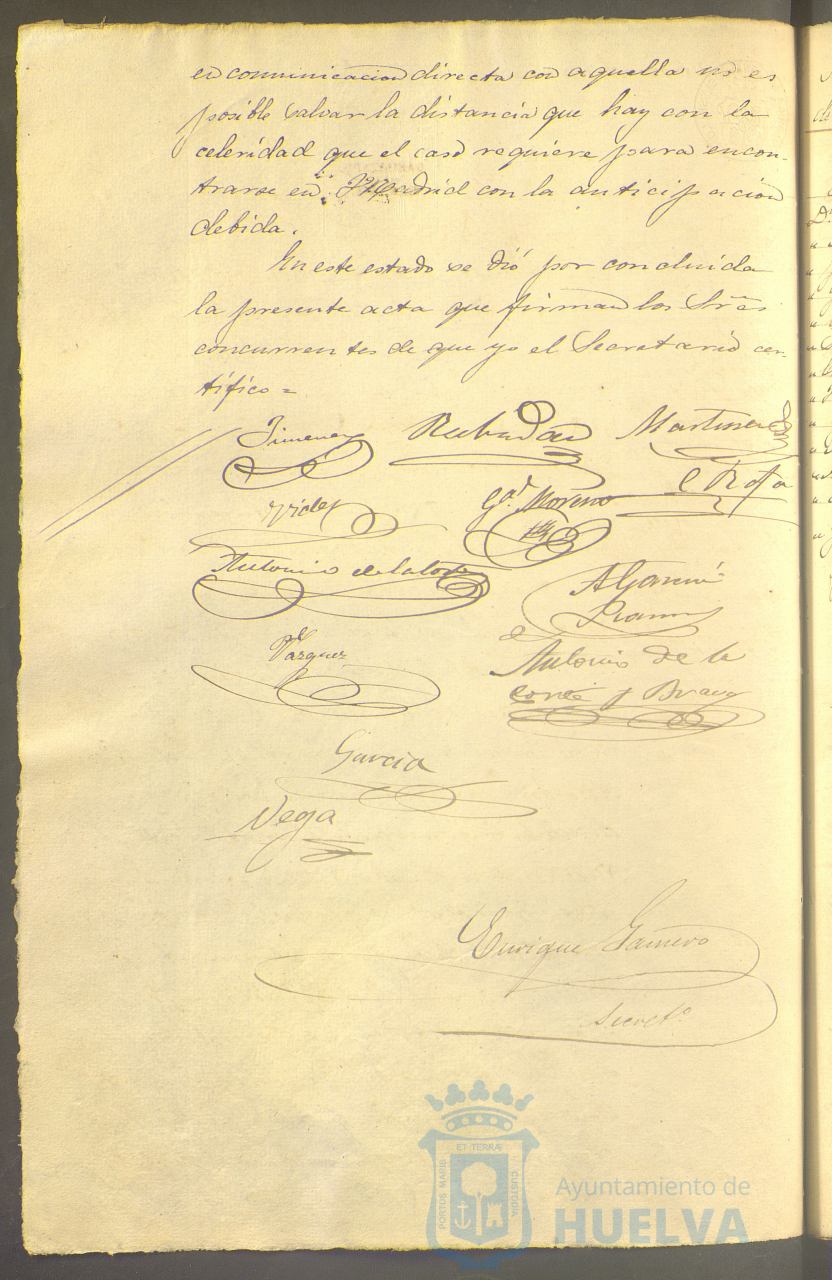 en comunicacion directa con aquella no es
posible salvar la distancia que hay con la
celeridad que el caso requiere para encon-
trarse en Madrid con la anticipación
debida.
En este estado se dió por concluida
la presente acta que firman los Sres
concurrentes de que yo el Secretario cer-
tifico =
Jimenez Martinez
Gª Moreno
Antonio de la Corte
A Garcia
Ramos
Vazquez
Antonio de la
Corte y Bravo
Garcia
Vega
Enrique Gamero
Secretº
ET TERRÆ
PORTUS MARIS
CUSTODIA
Ayuntamiento de
HUELVA